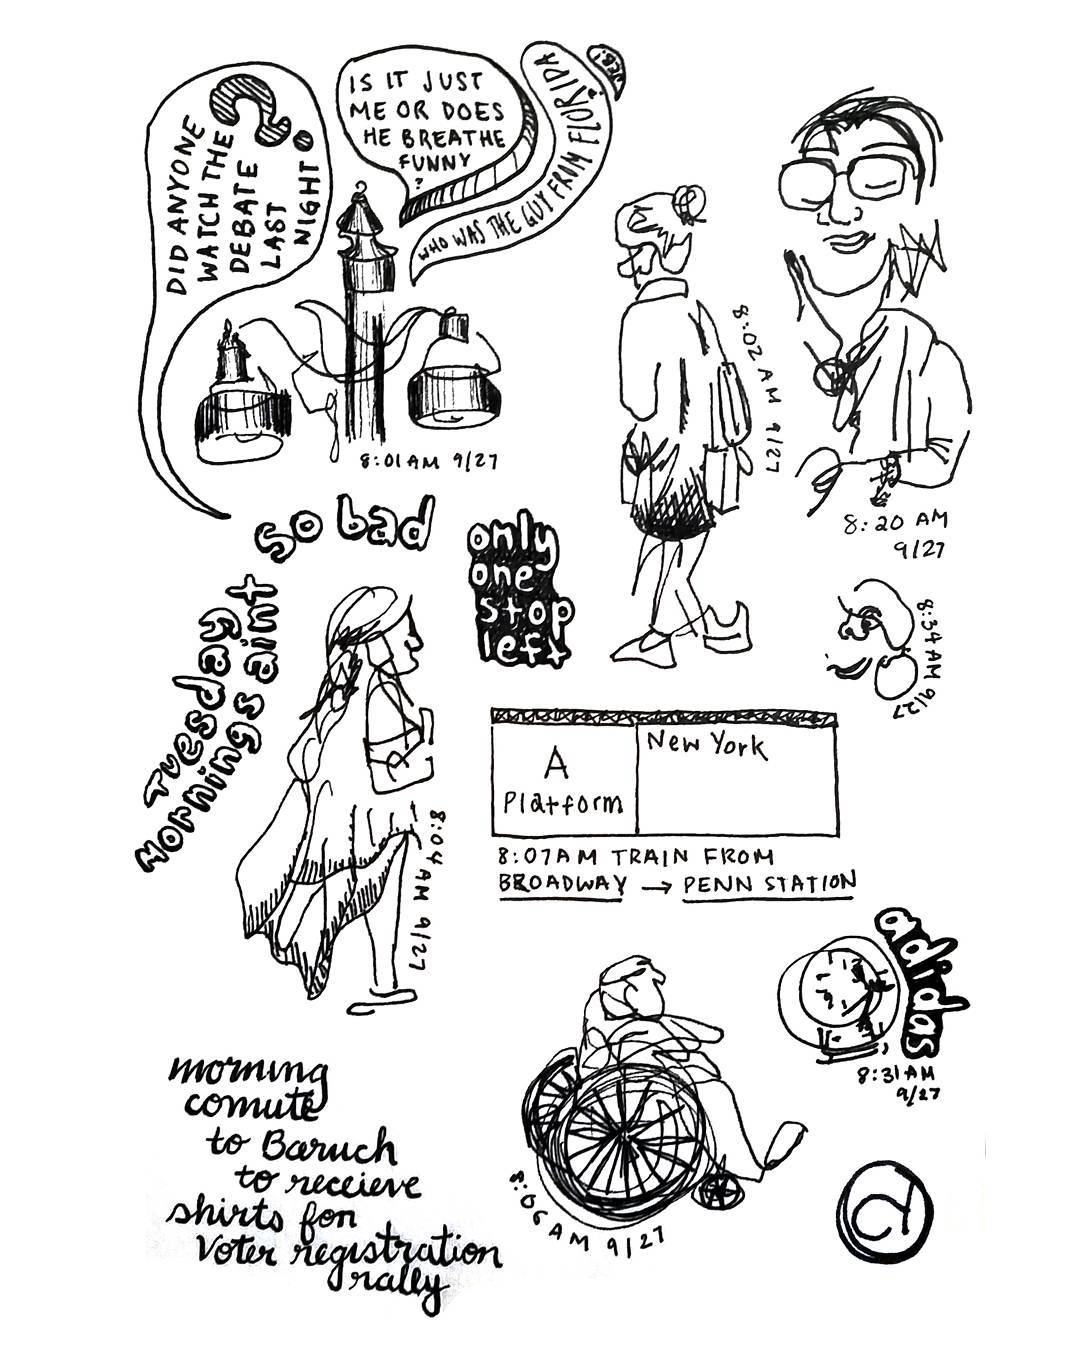 DID ANYONE
WATCH THE
DEBATE
LAST
NIGHT
?
IS IT JUST
ME OR DOES
HE BREATHE
FUNNY
?
WHO WAS THE GUY FROM FLORIDA
8:01 AM 9/27
8:02 AM 9/27
8:20 AM
9/27
so bad
Tuesday
Mornings aint
only
one
stop
left
8:34 AM 9/27
8:04 AM 9/27
A
Platform
New York
8:07AM TRAIN FROM
BROADWAY → PENN STATION
adidas
8:31 AM
9/27
8:06 AM 9/27
morning
comute
to Baruch
to receieve
shirts for
Voter registration
rally